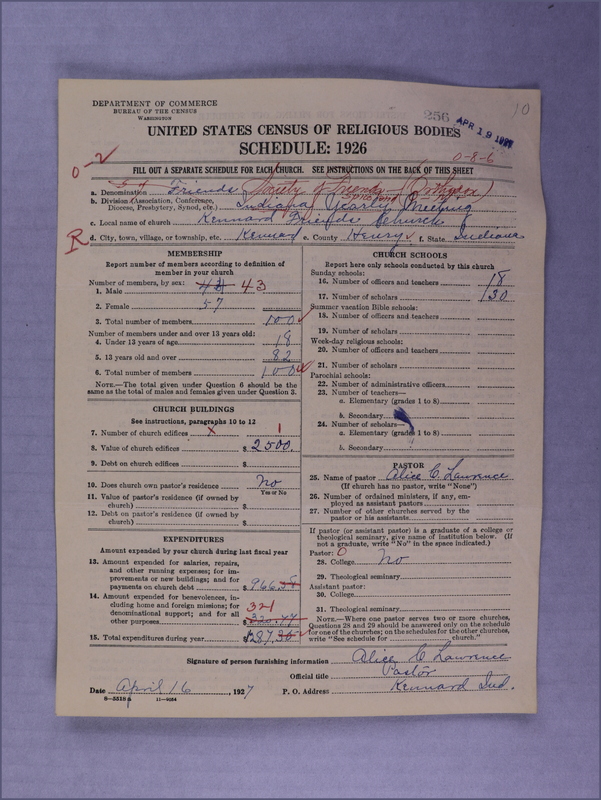 DEPARTMENT OF COMMERCE
BUREAU OF THE CENSUS
WASHINGTON
256
APR 19 1927
10
UNITED STATES CENSUS OF RELIGIOUS BODIES
SCHEDULE: 1926
0-8-6
0-2
FILL OUT A SEPARATE SCHEDULE FOR EACH CHURCH. SEE INSTRUCTIONS ON THE BACK OF THIS SHEET
a. Denomination Friends Society of Friends (Orthodox)
b. Division (Association, Conference, Diocese, Presbytery, Synod, etc.) Indiana Yearly Meeting
c. Local name of church Kennard Friends Church
R
d. City, town, village, or township, etc. Kennard e. County Henry f. State Indiana
MEMBERSHIP
Report number of members according to definition of
member in your church
Number of members, by sex:
1. Male 43
2. Female 57
3. Total number of members 100
Number of members under and over 13 years old:
4. Under 13 years of age 18
5. 13 years old and over 82
6. Total number of members 100
NOTE.—The total given under Question 6 should be
same as the total of males and females given under Question 3.
CHURCH BUILDINGS
See instructions, paragraphs 10 to 12
7. Number of church edifices x 1
8. Value of church edifices $ 2500.
9. Debt on church edifices $
10. Does church own pastor's residence No
Yes or No
11. Value of pastor's residence (if owned by
church) $
12. Debt on pastor's residence (if owned by
church) $
EXPENDITURES
Amount expended by your church during last fiscal year
13. Amount expended for salaries, repairs,
and other running expenses; for im-
provements or new buildings; and for
payments on church debt $ 966.58
14. Amount expended for benevolences, in-
cluding home and foreign missions; for
denominational support; and for all
other purposes 321
$ 320.77
15. Total expenditures during year $ 1287.35
CHURCH SCHOOLS
Report here only schools conducted by this church
Sunday schools:
16. Number of officers and teachers 18
17. Number of scholars 130
Summer vacation Bible schools:
18. Number of officers and teachers
19. Number of scholars
Week-day religious schools:
20. Number of officers and teachers
21. Number of scholars
Parochial schools:
22. Number of administrative officers
23. Number of teachers—
a. Elementary (grades 1 to 8)
b. Secondary
24. Number of scholars—
a. Elementary (grades 1 to 8)
b. Secondary
PASTOR
25. Name of pastor Alice C. Lawrence
(If church has no pastor, write "None")
26. Number of ordained ministers, if any, em-
ployed as assistant pastors
27. Number of other churches served by the
pastor or his assistants
If pastor (or assistant pastor) is a graduate of a college or
theological seminary, give name of institution below. (If
not a graduate, write "No" in the space indicated.)
Pastor: 0
28. College No
29. Theological seminary
Assistant pastor:
30. College
31. Theological seminary
NOTE.—Where one pastor serves two or more churches,
Questions 28 and 29 should be answered only on the schedule
for one of the churches; on the schedules for the other churches,
write "See schedule for church."
Signature of person furnishing information Alice C Lawrence
Official title Pastor
Date April 16, 1927 P. O. Address Kennard Ind.
11—9084